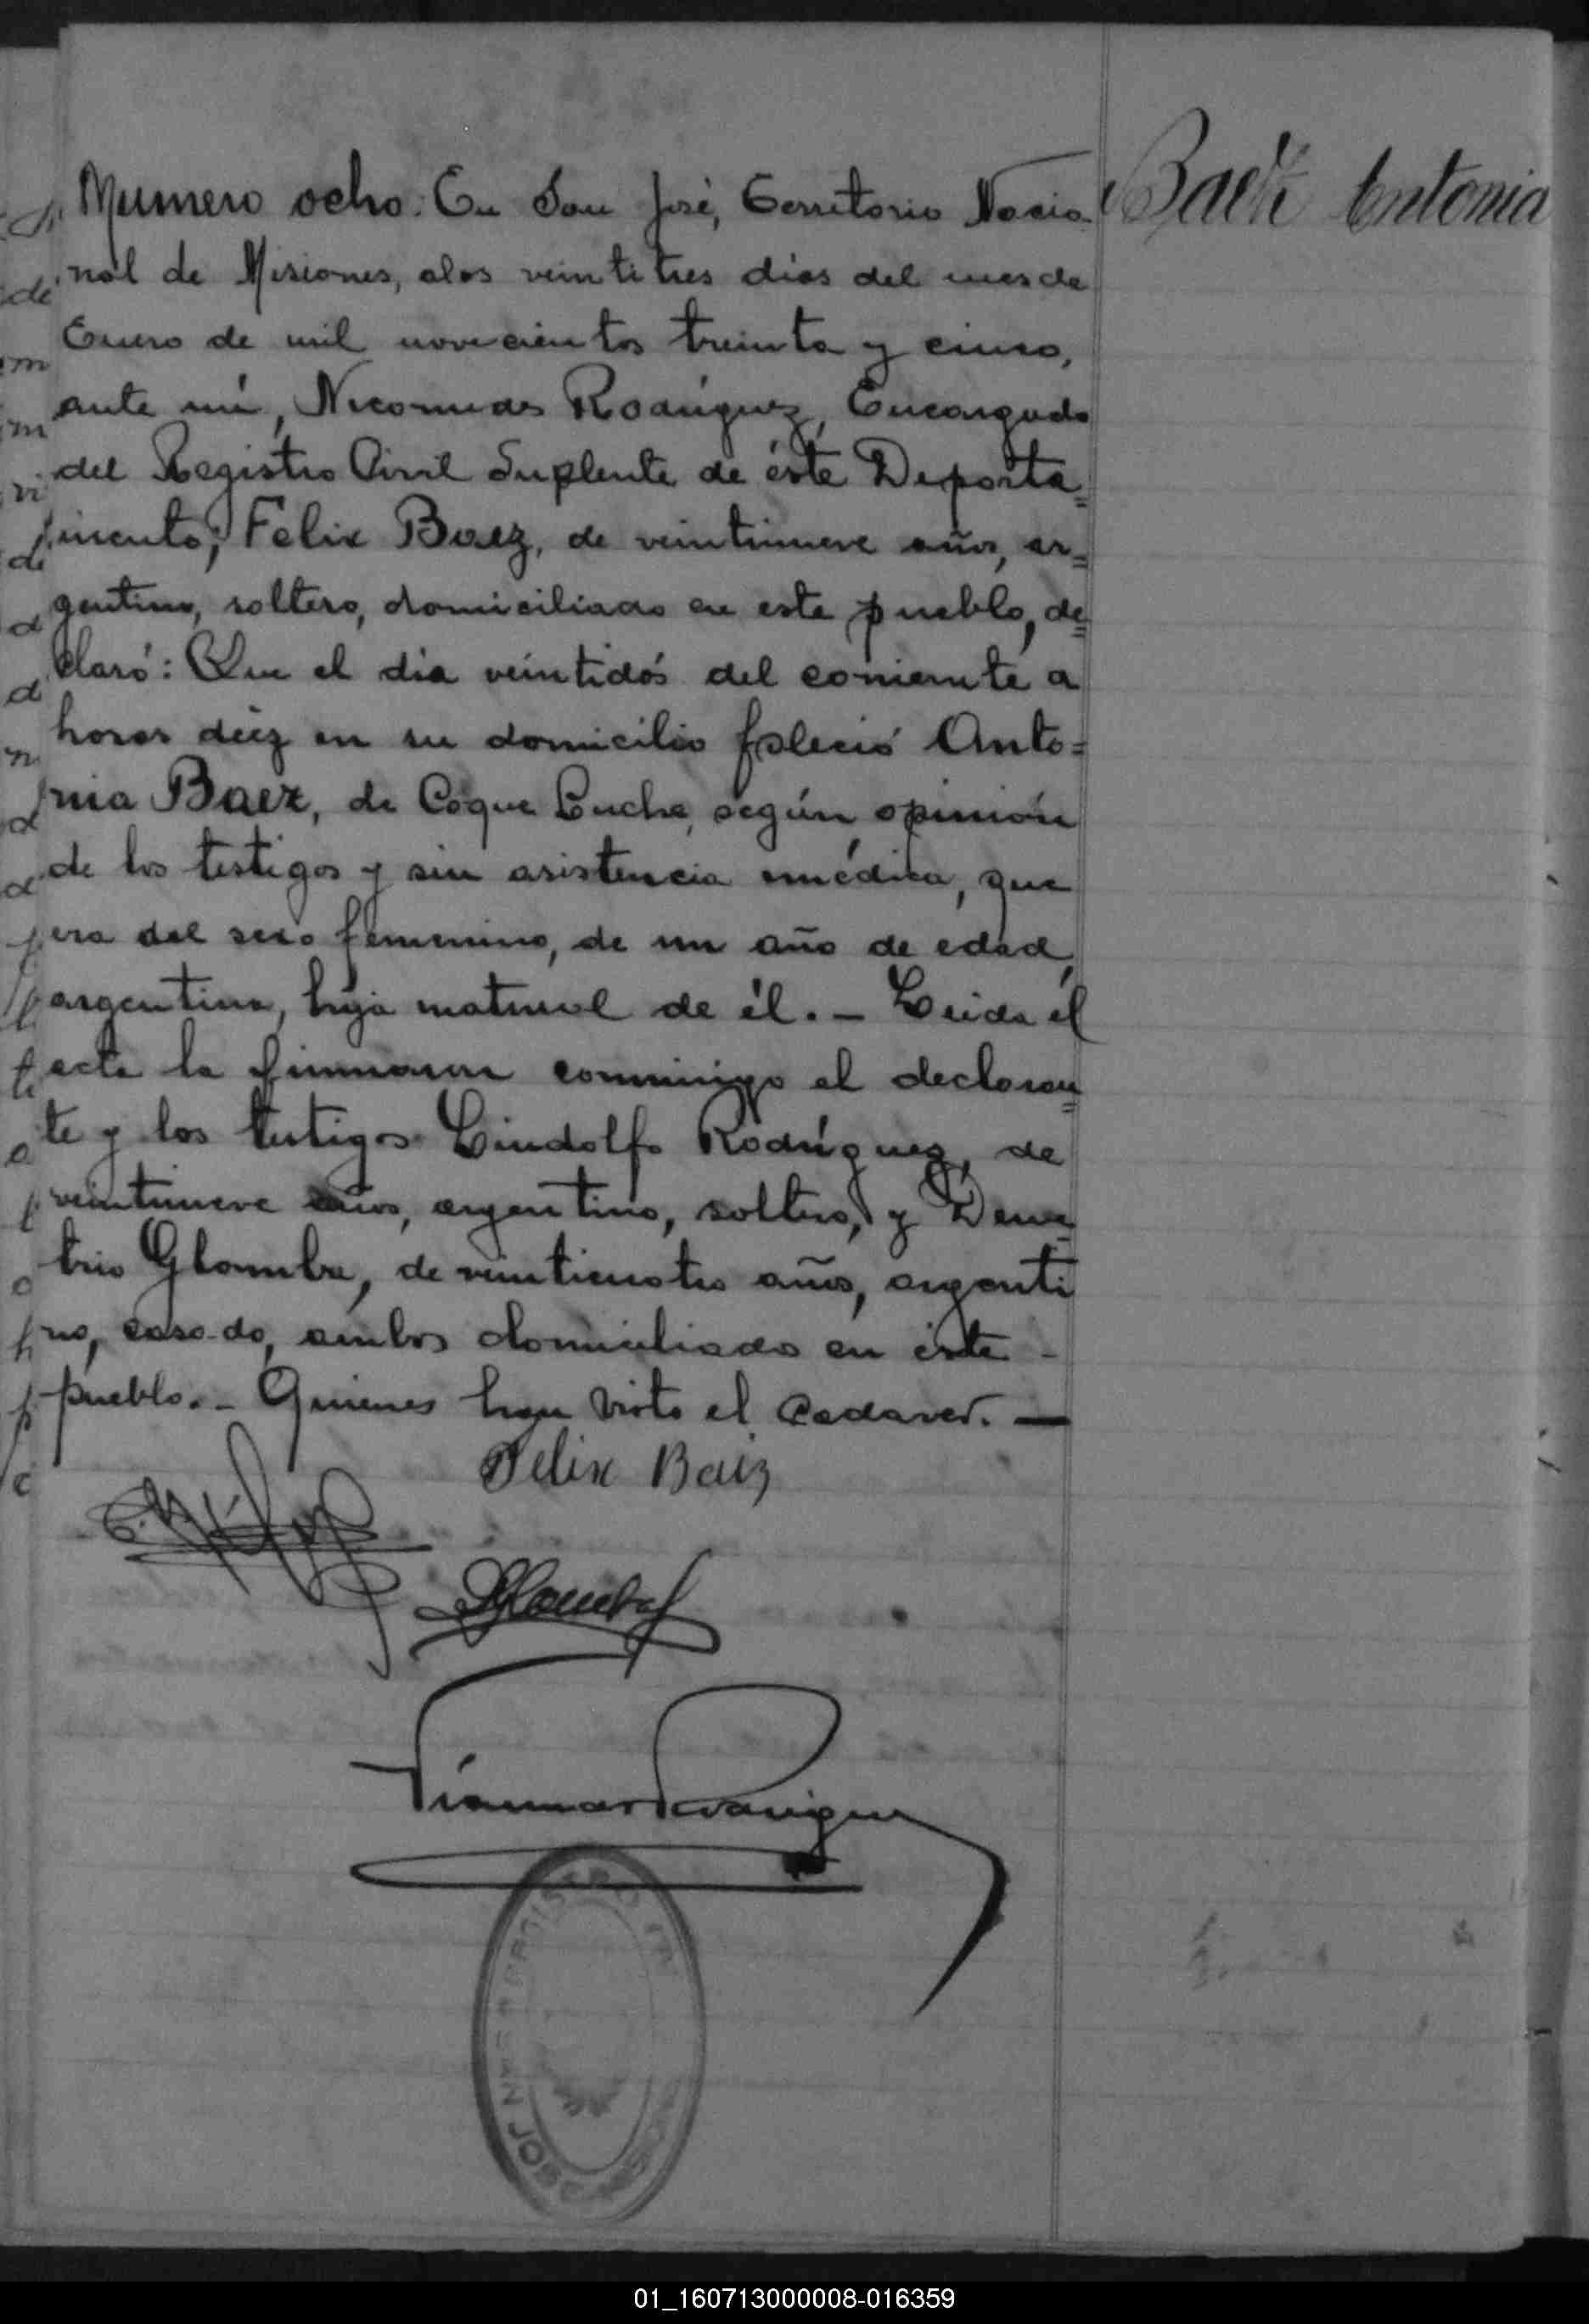 Baez Antonia
Numero ocho. En San José, Territorio Nacio-
nal de Misiones, a los veintitres dias del mes de
Enero de mil novecientos treinta y cinco,
ante mí, Nicomedes Rodríguez, Encargado
del Registro Civil Suplente de éste Departa=
mento; Felix Baez, de veintinueve años, ar=
gentino, soltero, domiciliado en este pueblo, de=
claró: Que el día veintidós del corriente a
horas diez en su domicilio falleció Anto=
nia Baez, de Coqueluche, según opinión
de los testigos y sin asistencia médica, que
era del sexo femenino, de un año de edad,
argentina, hija natural de él. — Leida el
acta la firmaron conmigo el declaran=
te y los testigos Lindolfo Rodríguez, de
veintinueve años, argentino, soltero, y Deme=
trio Glomba, de veinticuatro años, argenti
no, casado, ambos domiciliado en éste -
pueblo. - Quienes han visto el cadaver. —
Felix Baiz
DGlomba
Rodriguez
01_160713000008-016359